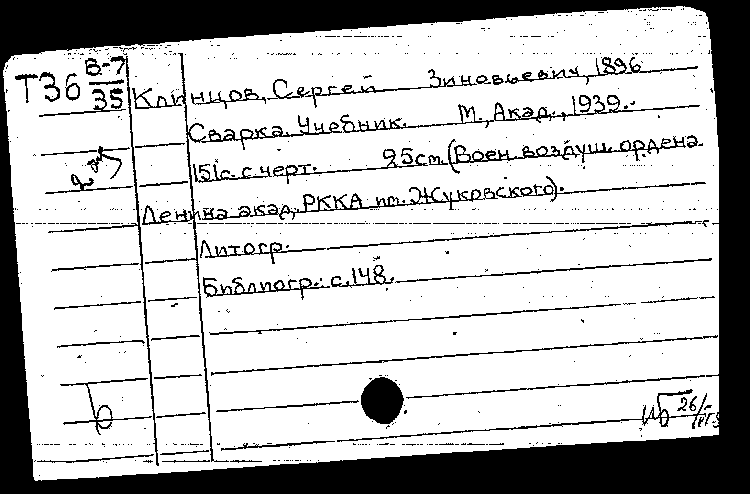 Т36 В-7
35
Клинцов, Сергей Зиновьевич, 1896
Сварка. Учебник. М., Акад., 1939.
151с. с черт. 25см. (Воен. воздуш. ордена
2 эк
Ленина акад. РККА им. Жуковского).
Литогр.
Библиогр.: с. 148.